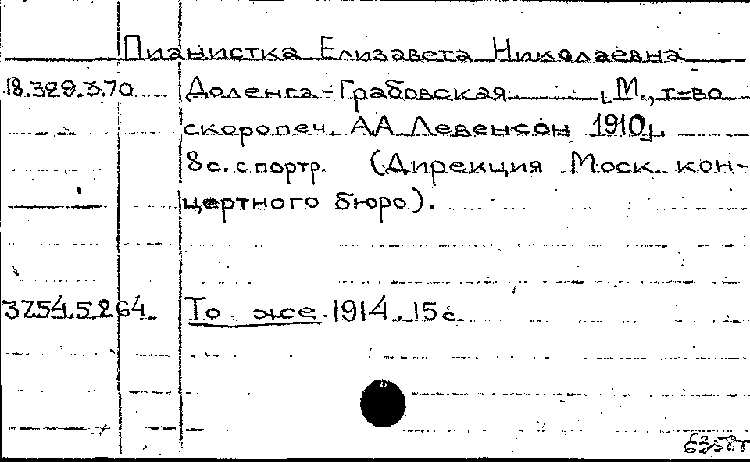 Пианистка Елизавета Николаевна
18.329.3.70 Доленга-Грабовская [М., т-во
скоропеч. А.А. Левенсон 1910].
8 с. с портр. (Дирекция Моск. кон-
цертного бюро).
3254.5.264. То же. 1914. 15 с.